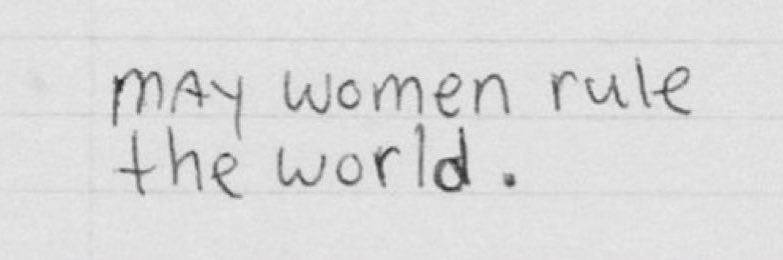 MAY women rule
the world.